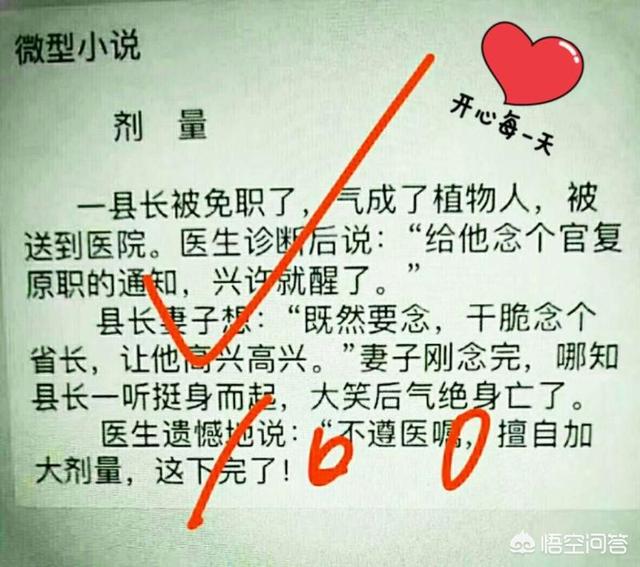 微型小说
开心每一天
剂 量
一县长被免职了，气成了植物人，被
送到医院。医生诊断后说：“给他念个官复
原职的通知，兴许就醒了。”
县长妻子想：“既然要念，干脆念个
省长，让他高兴高兴。”妻子刚念完，哪知
县长一听挺身而起，大笑后气绝身亡了。
医生遗憾地说：“不遵医嘱，擅自加
大剂量，这下完了！
100
悟空问答